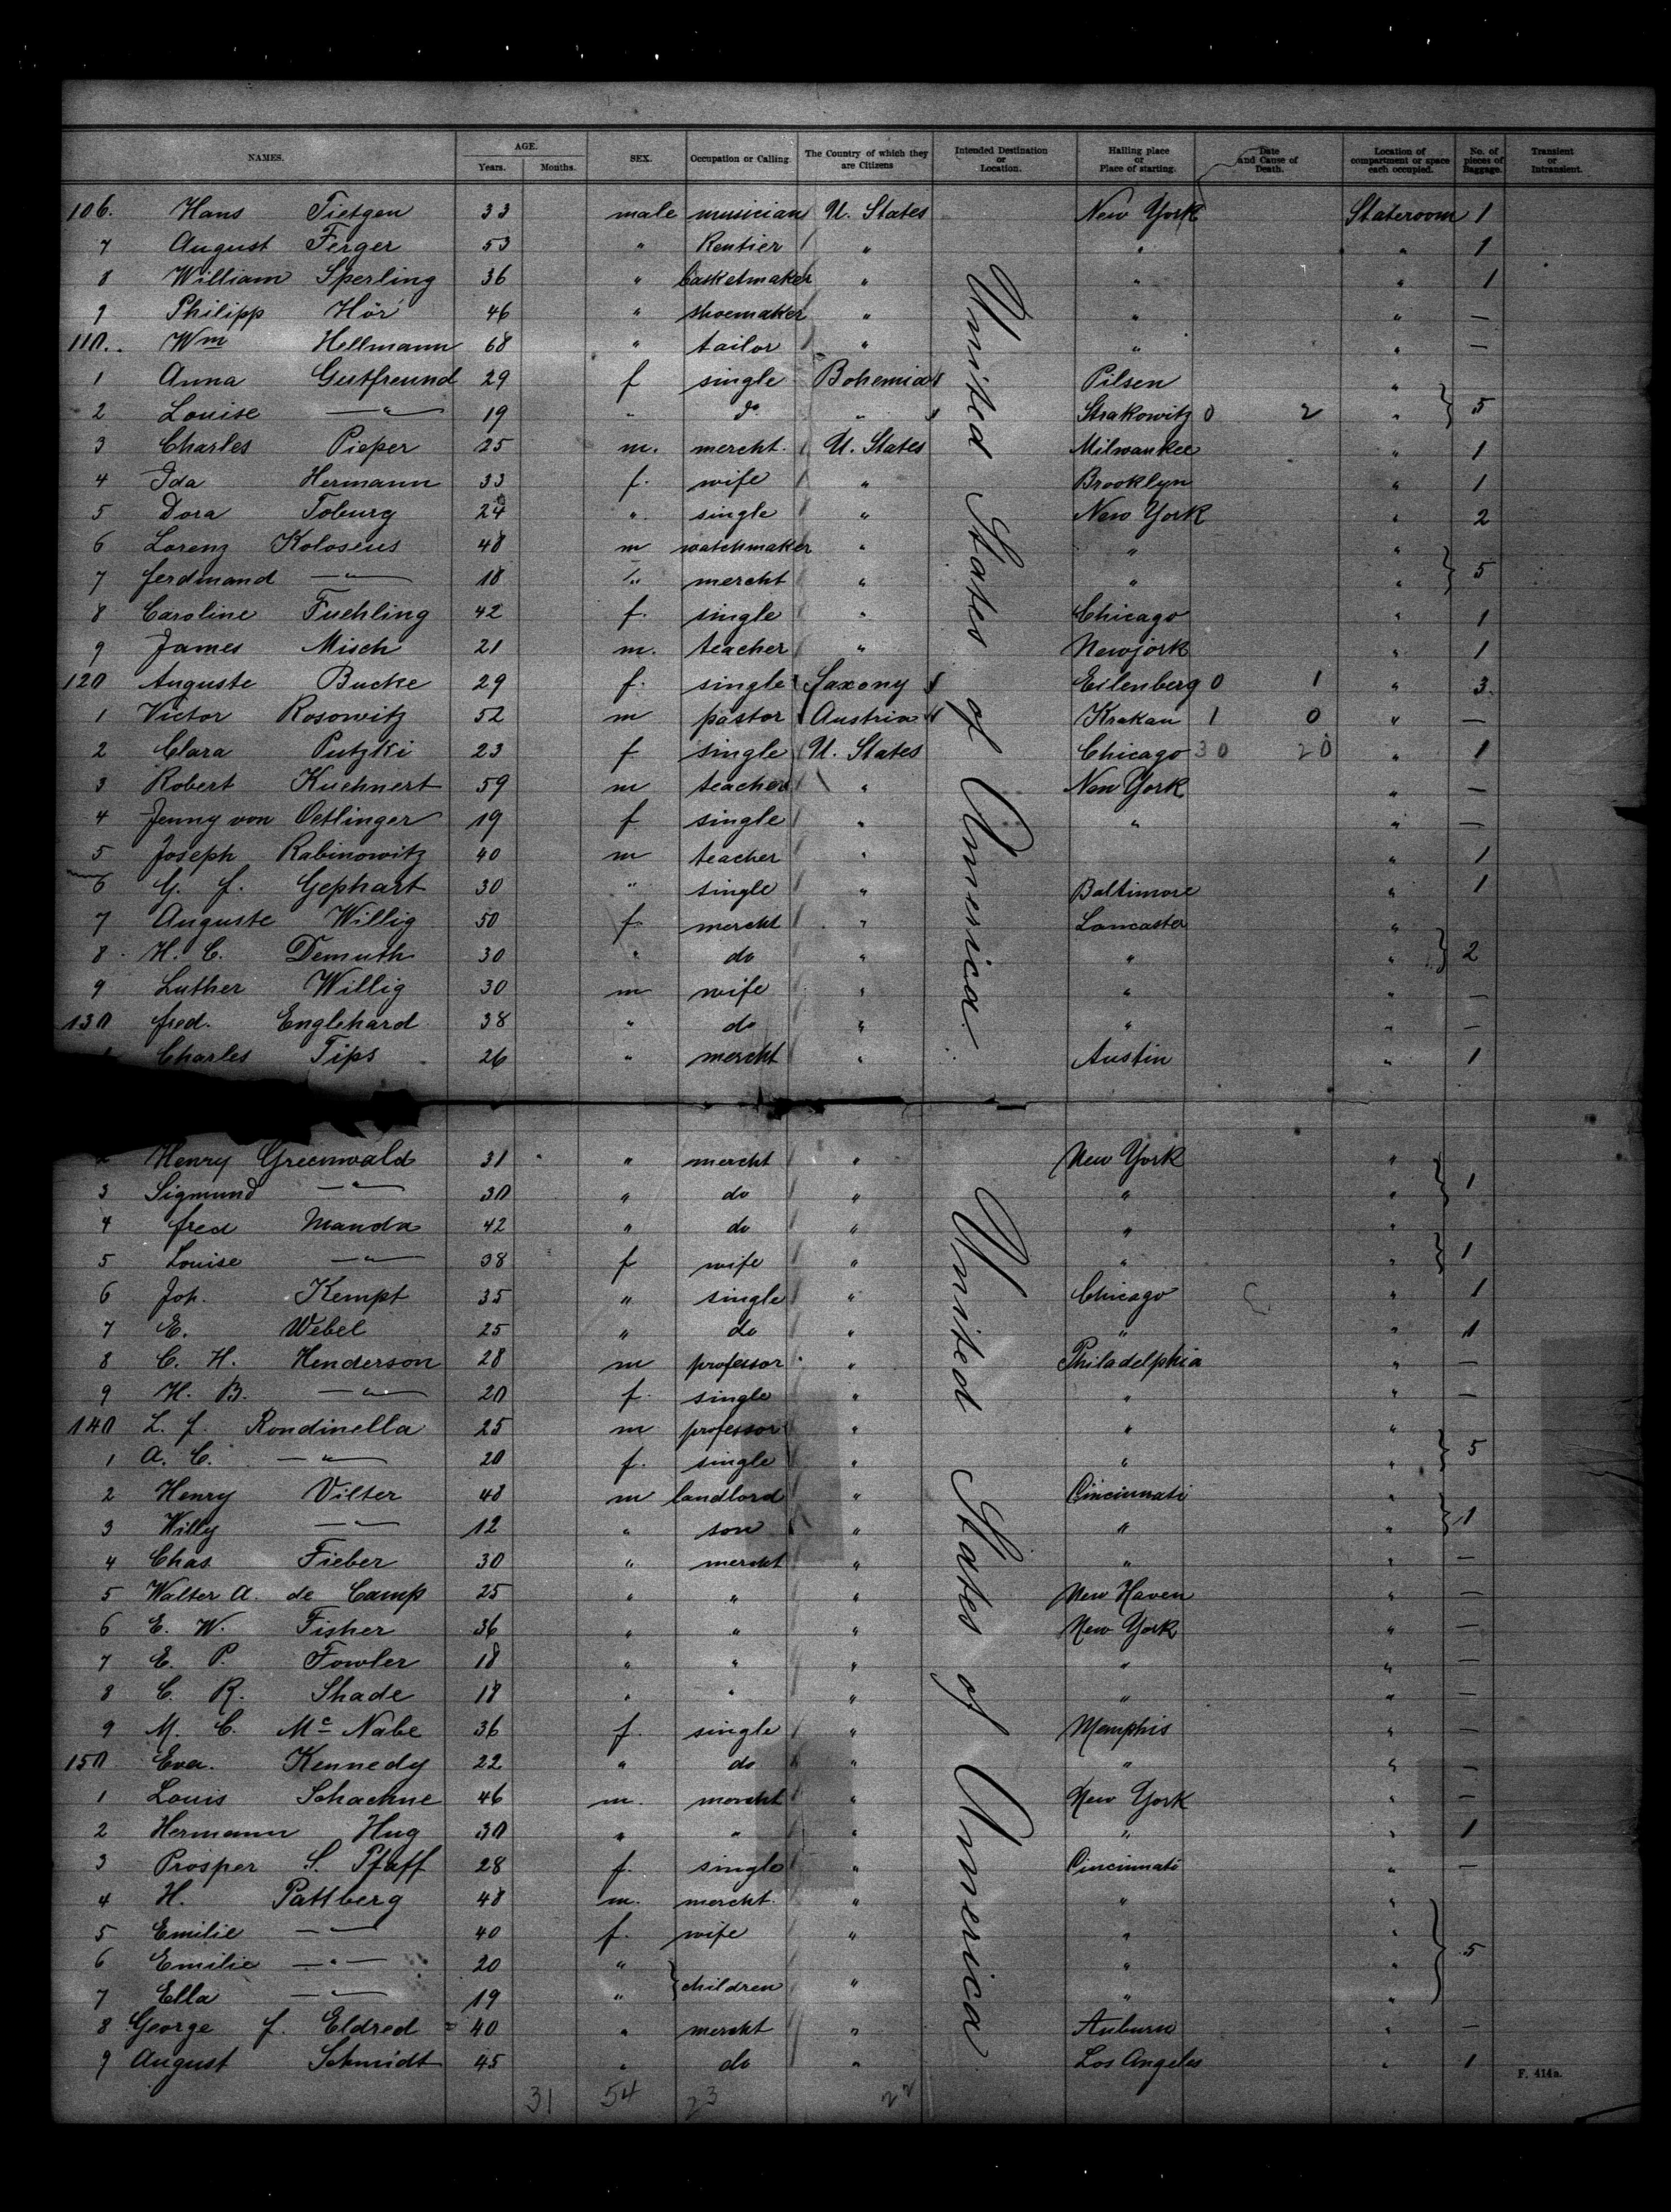 NAMES. AGE. Years. Months. SEX. Occupation or Calling. The Country of which they are Citizens Intended Destination or Location. Hailing place or Place of starting. Date and Cause of Death. Location of compartment or space each occupied. No. of pieces of Baggage. Transient or Intransient.
106. Hans Tietgen 33 male musician U. States New York Stateroom 1
7 August Ferger 53 " Rentier " " " 1
8 William Sperling 36 " basketmaker " " " 1
9 Philipp Hör 46 " shoemaker " " " —
110. Wm Hellmann 68 " tailor " " " —
1 Anna Gutfreund 29 f single Bohemia Pilsen "
2 Louise —"— 19 " do " Strakowitz 0 2 " 5
3 Charles Pieper 25 m. mercht. U. States Milwaukee " 1
4 Ida Hermann 33 f. wife " Brooklyn " 1
5 Dora Toburg 24 " single " New York " 2
6 Lorenz Koloseus 48 m watchmaker " " "
7 ferdinand —"— 18 " mercht " " " 5
8 Caroline Fuehling 42 f. single " Chicago " 1
9 James Misch 21 m. teacher " Newjork " 1
120 Auguste Bucke 29 f. single Saxony Eilenberg 0 1 " 3.
1 Victor Rosowitz 52 m pastor Austria Krakau 1 0 " —
2 Clara Putzki 23 f single U. States Chicago 30 20 " 1
3 Robert Kuehnert 59 m teacher " New York " —
4 Jenny von Oetlinger 19 f single " " " —
5 Joseph Rabinowitz 40 m teacher " " 1
6 G. f. Gephart 30 " single " Baltimore " 1
7 Auguste Willig 50 f mercht " Lancaster "
8 H. C. Demuth 30 " do " " " 2
9 Luther Willig 30 m wife " " " —
130 fred. Englehard 38 " do " " " —
Charles Tips 26 " mercht " Austin " 1
United States of America
2 Henry Greenwald 31 " mercht " New York "
3 Sigmund —"— 30 " do " " " 1
4 fred Manda 42 " do " " "
5 Louise —"— 38 f wife " " " 1
6 Joh. Kempt 35 " single " Chicago " 1
7 E. Webel 25 " do " " " 1
8 C. H. Henderson 28 m professor " Philadelphia " —
9 H. B. —"— 20 f. single " " " —
140 L. f. Rondinella 25 m professor " " "
1 A. C. —"— 20 f. single " " " 5
2 Henry Vilter 48 m landlord " Cincinnati "
3 Willy —"— 12 " son " " " 1
4 Chas. Fieber 30 " mercht " " " —
5 Walter A. de Camp 25 " " " New Haven " —
6 E. W. Fisher 36 " " " New York " —
7 E. P. Fowler 18 " " " " " —
8 C. R. Shade 18 " " " " " —
9 M. C. Mc Nabe 36 f. single " Memphis " —
150 Eva. Kennedy 22 " do " " " —
1 Louis Schachne 46 m. mercht " New York " —
2 Hermann Hug 30 " " " " " 1
3 Prosper S. Pfaff 28 f. single " Cincinnati " —
4 H. Pattberg 48 m. mercht. " " "
5 Emilie —"— 40 f. wife " " "
6 Emilie —"— 20 " children " " " 5
7 Ella —"— 19 " " "
8 George f. Eldred 40 " mercht " Auburn " —
9 August Schmidt 45 " do " Los Angeles " 1
United States of America
F. 414a.
31 54 23 22